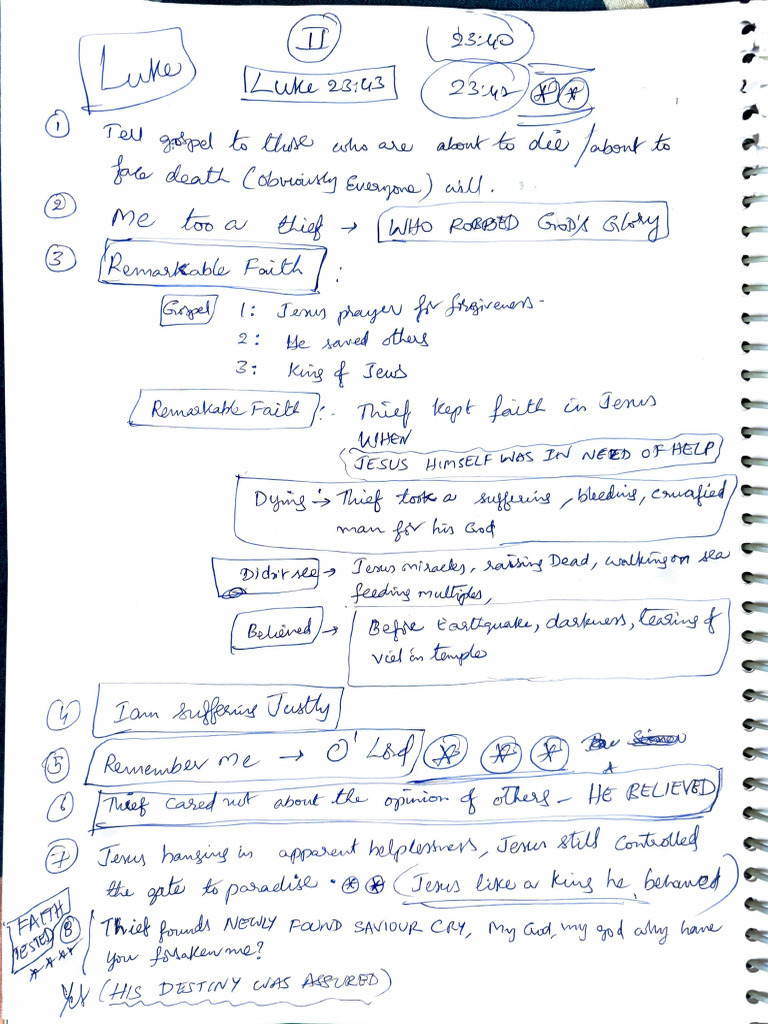 II
23:40
Luke
Luke 23:43
23:42
① Tell gospel to those who are about to die / about to
face death (obviously Everyone) will.
② Me too a thief → WHO ROBBED GOD'S GLORY
③ Remarkable Faith :
Gospel 1: Jesus prayer for forgiveness.
2: He saved others
3: King of Jews
Remarkable Faith :- Thief kept faith in Jesus
WHEN
JESUS HIMSELF WAS IN NEED OF HELP
Dying → Thief took a suffering, bleeding, crucified
man for his God
Didn't see → Jesus miracles, raising Dead, walking on sea
feeding multiples,
Believed → Before Earthquake, darkness, tearing of
viel in temple
④ I am suffering Justly
⑤ Remember me → O' Lord
⑥ Thief cared not about the opinion of others - HE BELIEVED
⑦ Jesus hanging in apparent helplessness, Jesus still controlled
the gate to paradise. (Jesus like a King he, behaved)
FAITH TESTED ⑧ Thief founds NEWLY FOUND SAVIOUR CRY, My God, my god why have
you forsaken me?
Yet (HIS DESTINY WAS ASSURED)